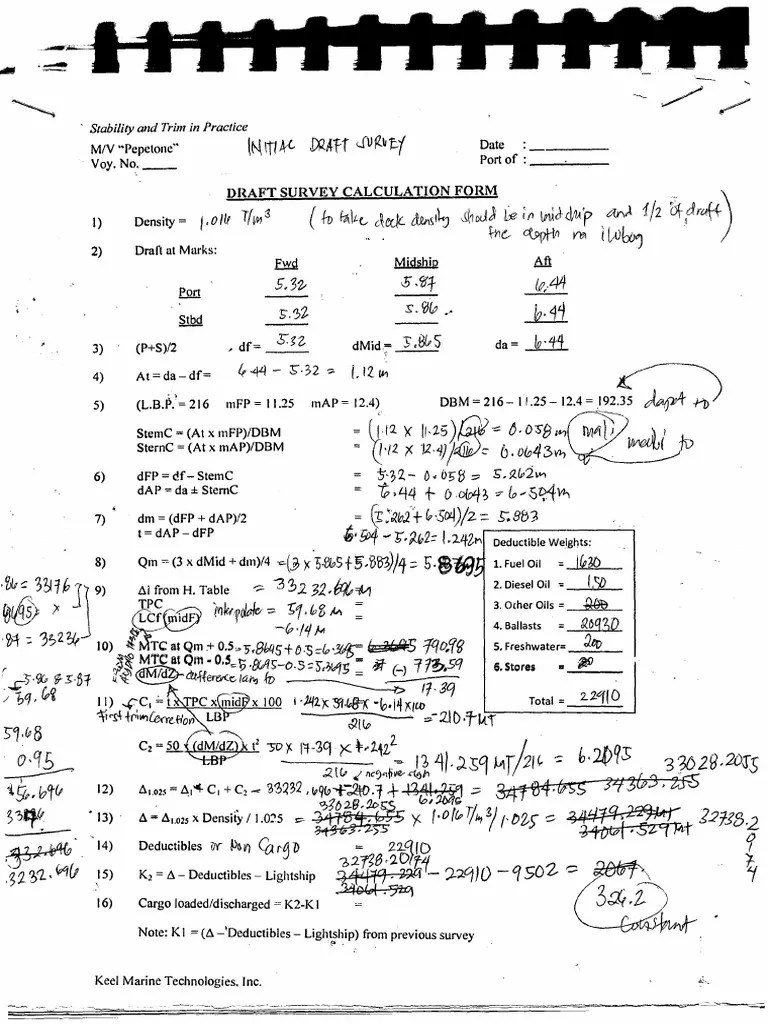 Stability and Trim in Practice
M/V "Pepetone" INITIAL DRAFT SURVEY Date : ______
Voy. No. ____ Port of : ______
DRAFT SURVEY CALCULATION FORM
1) Density = 1.016 T/m³ (to take dock density should be in midship and 1/2 of draft
the depth
2) Draft at Marks:
Fwd Midship Aft
Port 5.32 5.87 6.44
Stbd 5.32 5.86 6.44
3) (P+S)/2 df = 5.32 dMid = 5.865 da = 6.44
4) At = da – df = 6.44 - 5.32 = 1.12 m
5) (L.B.P. = 216 mFP = 11.25 mAP = 12.4) DBM = 216 – 11.25 – 12.4 = 192.35 dapat to
StemC = (At x mFP)/DBM = (1.12 x 11.25)/216 = 0.058m mali
SternC = (At x mAP)/DBM = (1.12 x 12.4)/216 = 0.0643m mali to
6) dFP = df - StemC = 5.32 - 0.058 = 5.262m
dAP = da ± SternC = 6.44 + 0.0643 = 6.504m
7) dm = (dFP + dAP)/2 = (5.262 + 6.504)/2 = 5.883
t = dAP – dFP 6.504 - 5.262 = 1.242m
Deductible Weights:
1. Fuel Oil = 1630
2. Diesel Oil = 150
3. Other Oils = 200
4. Ballasts = 20930
5. Freshwater = 200
6. Stores =
Total = 22910
8) Qm = (3 x dMid + dm)/4 = (3 x 5.865 + 5.883)/4 = 5.8695
.86 = 33176
9) Δi from H. Table = 33232.696 m
8695 x
TPC interpolate = 59.68 m
LCf (midF) = -6.14 m
.87 = 33236
10) MTC at Qm + 0.5 = 5.8695 + 0.5 = 6.3695 = 790.98
MTC at Qm - 0.5 = 5.8695 - 0.5 = 5.3695 = (-) 773.59
dM/dZ difference 17.39
5.86 & 5.87
59.68
11) C₁ = t x TPC x midF x 100 1.242 x 59.68 x -6.14 x 100 = -210.7 MT
First trim correction LBP 216
59.68
0.95
C₂ = 50 x (dM/dZ) x t² 50 x 17.39 x 1.242² = 1341.259 MT/216 = 6.2095
LBP 216 negative sign
33028.2055
56.696
12) Δ1.025 = Δ1 + C₁ + C₂ = 33232.696 + -210.7 + 1341.259 = 34784.655 34363.255
33028.2055 6.2095
33176
13) Δ = Δ1.025 x Density / 1.025 = 34784.655 x 1.016 T/m³/1.025 = 34479.229 Mt 32738.2
34363.255 34061.529 Mt
9
7
4
14) Deductibles or Non Cargo = 22910
332.696
32738.20174
3232.696
15) K₂ = Δ – Deductibles – Lightship = 34479.229 - 22910 - 9502 = 2067.
34061.529
326.2
Constant
16) Cargo loaded/discharged = K2-K1 =
Note: K1 = (Δ – Deductibles – Lightship) from previous survey
Keel Marine Technologies, Inc.